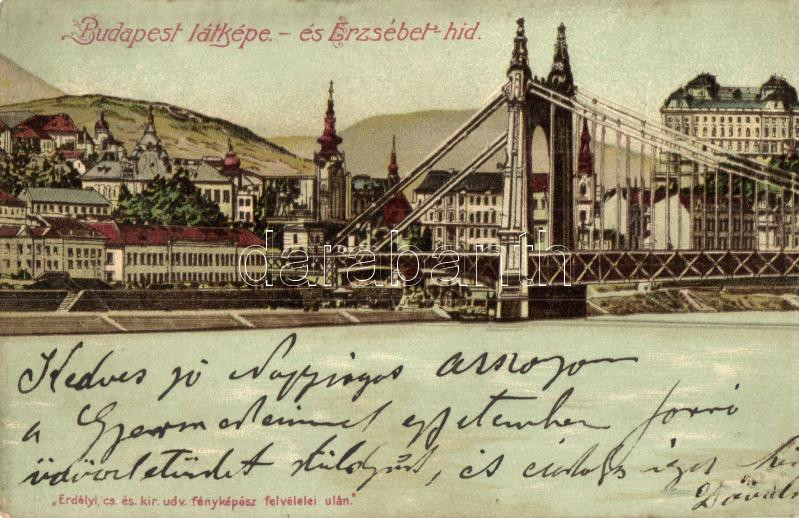 Budapest látképe. - és Erzsébet-hid.
darabanth
Kedves jó Nagyságos asszony
a Gyermekeimmel egyetemben forró
üdvözletünket küldjük, és
"Erdélyi, cs. és. kir. udv. fényképész felvételei után."